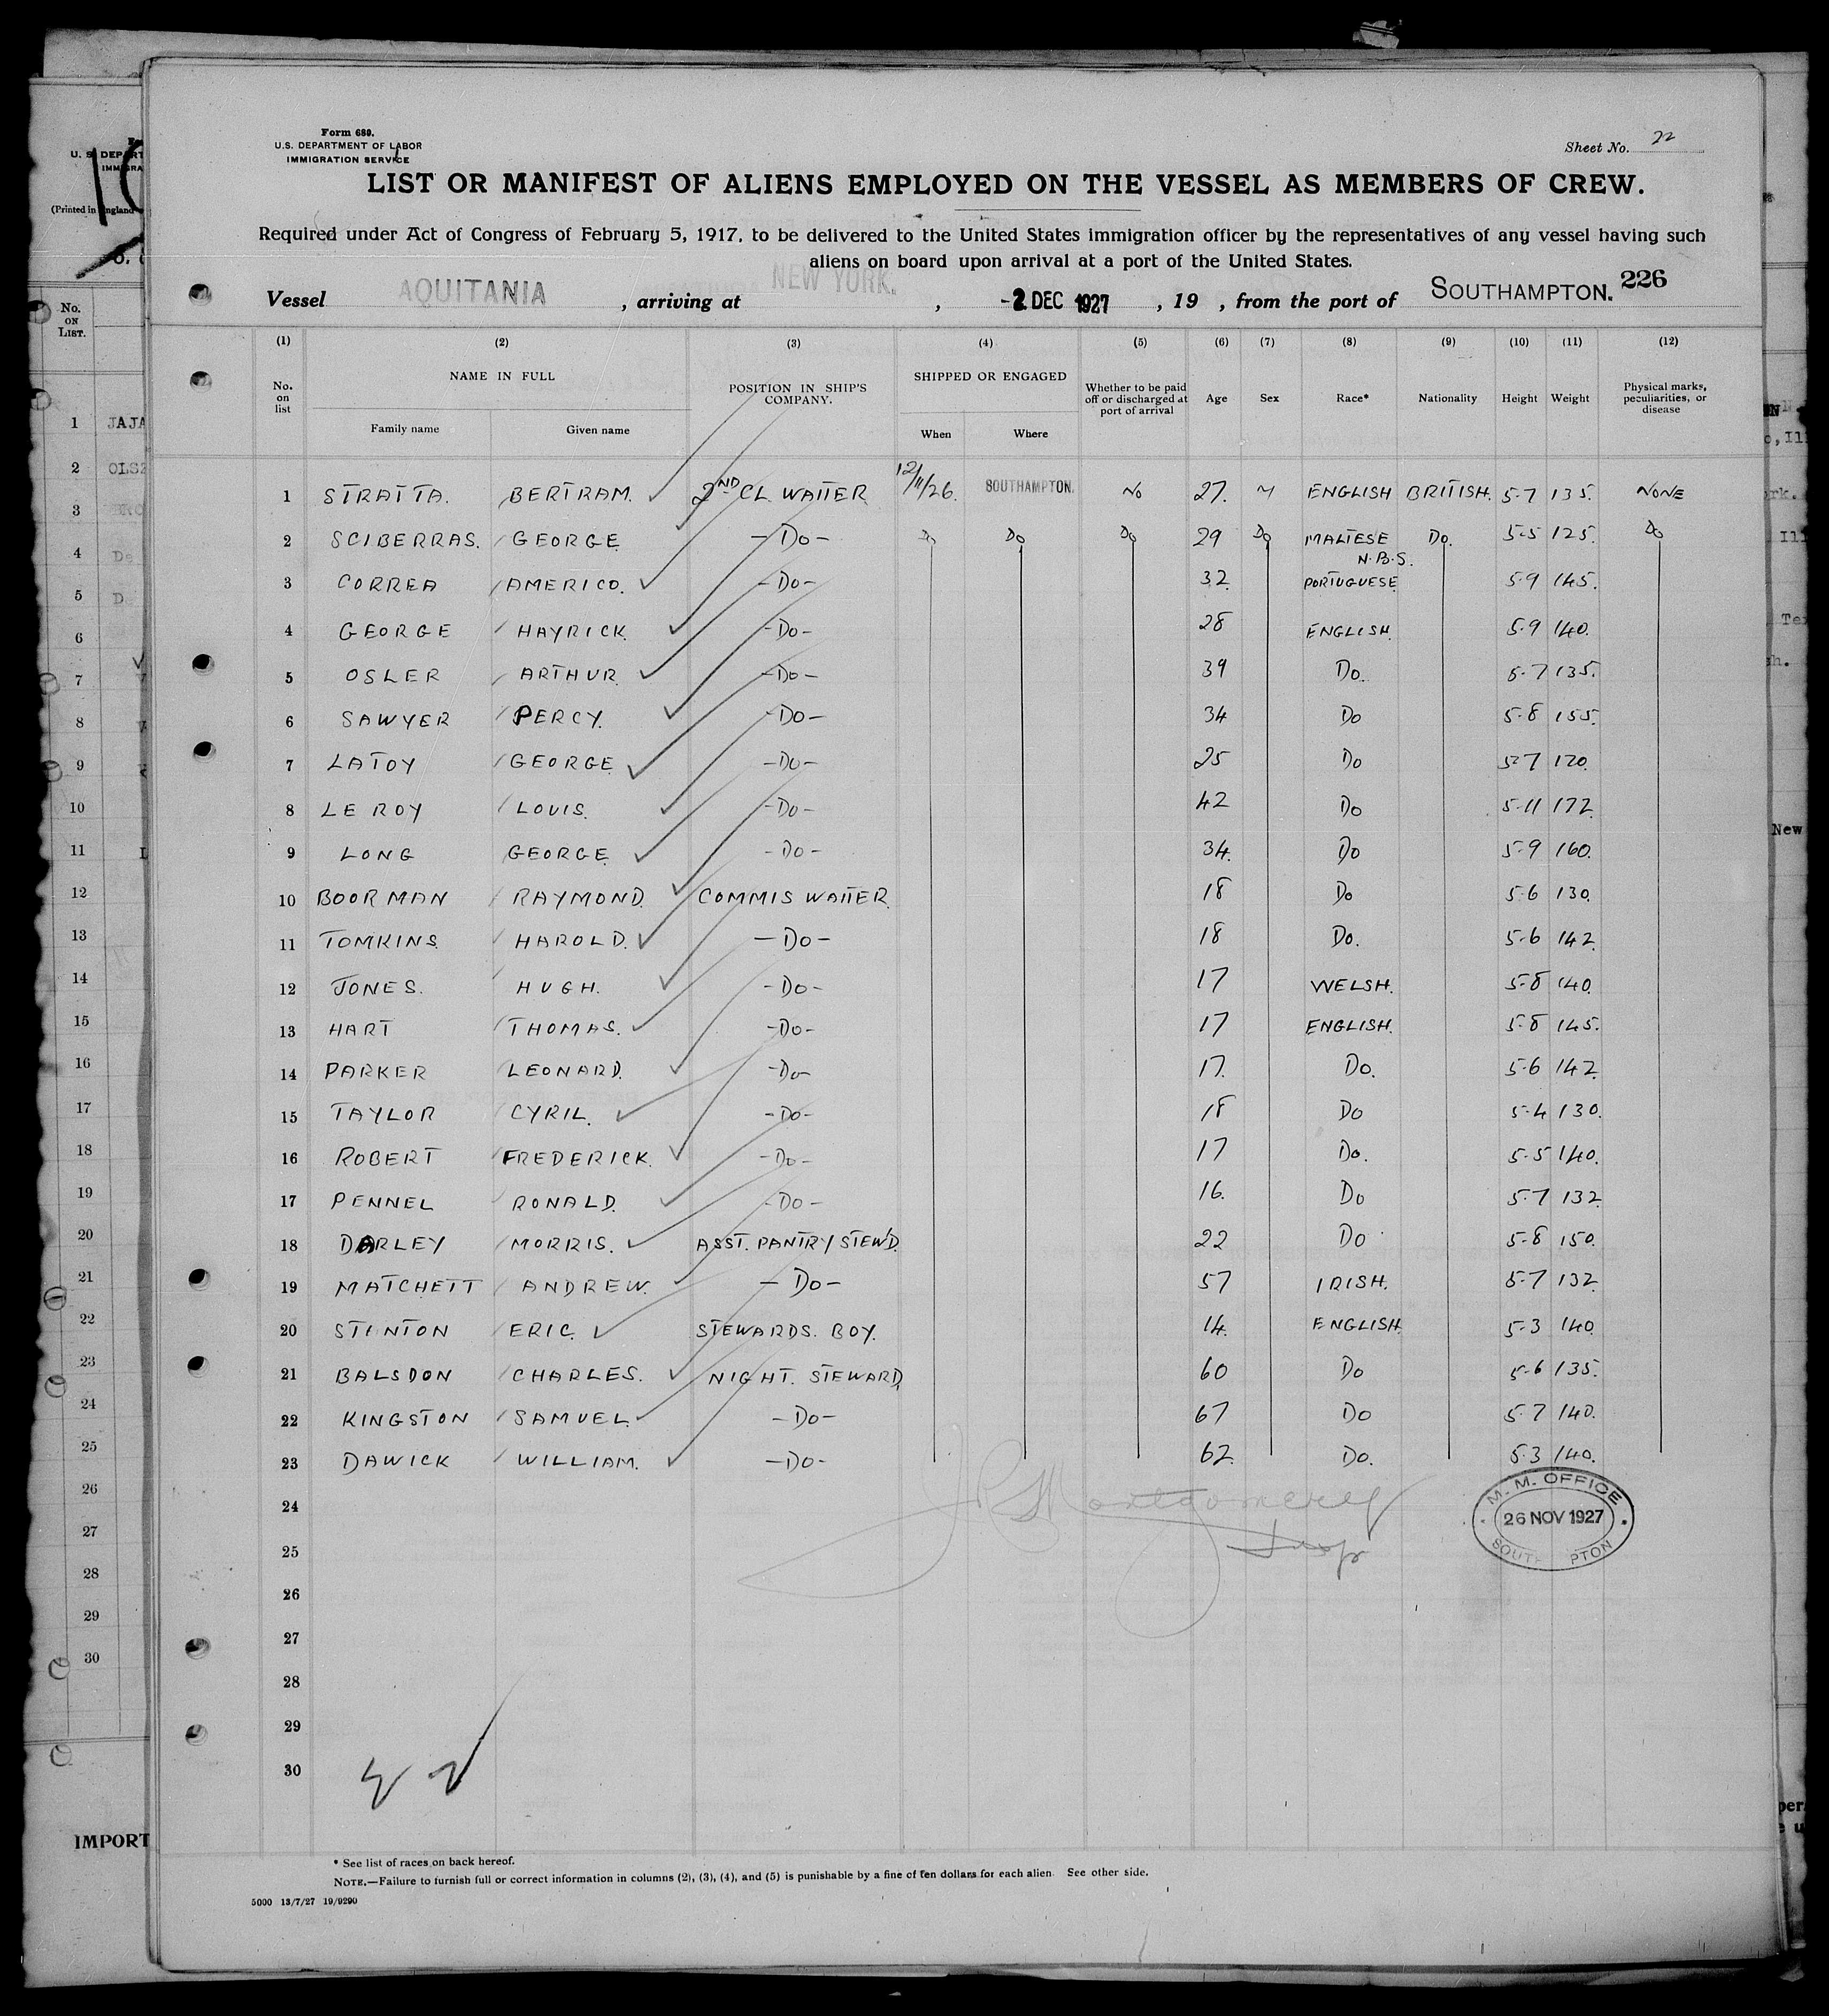 Form 680.
U.S. DEPARTMENT OF LABOR
IMMIGRATION SERVICE
Sheet No. 22
LIST OR MANIFEST OF ALIENS EMPLOYED ON THE VESSEL AS MEMBERS OF CREW.
Required under Act of Congress of February 5, 1917, to be delivered to the United States immigration officer by the representatives of any vessel having such
aliens on board upon arrival at a port of the United States.
Vessel AQUITANIA, arriving at NEW YORK., -2 DEC 1927, 19 , from the port of SOUTHAMPTON. 226
(1) (2) (3) (4) (5) (6) (7) (8) (9) (10) (11) (12)
No. on list NAME IN FULL Family name Given name POSITION IN SHIP'S COMPANY. SHIPPED OR ENGAGED When Where Whether to be paid off or discharged at port of arrival Age Sex Race* Nationality Height Weight Physical marks, peculiarities, or disease
1 STRATTA. BERTRAM. 2ND CL WAITER 12/11/26. SOUTHAMPTON. No 27. M ENGLISH BRITISH. 5-7 135. NONE
2 SCIBERRAS. GEORGE -Do- Do Do Do 29 Do MALTESE Do. 5-5 125. Do
N.B.S.
3 CORREA AMERICO. -Do- 32. PORTUGUESE 5-9 145.
4 GEORGE HAYRICK. -Do- 28 ENGLISH. 5-9 140.
5 OSLER ARTHUR. -Do- 39 Do. 5-7 135.
6 SAWYER PERCY. -Do- 34 Do 5-8 155.
7 LATOY GEORGE -Do- 25 Do 5-7 120.
8 LE ROY LOUIS. -Do- 42 Do 5-11 172.
9 LONG GEORGE. -Do- 34. Do 5-9 160.
10 BOORMAN RAYMOND. COMMIS WAITER. 18 Do 5-6 130.
11 TOMKINS. HAROLD. -Do- 18 Do. 5-6 142.
12 JONES. HUGH. -Do- 17 WELSH. 5-8 140.
13 HART THOMAS. -Do- 17 ENGLISH. 5-8 145.
14 PARKER LEONARD. -Do- 17. Do. 5-6 142.
15 TAYLOR CYRIL. -Do- 18 Do 5-4 130.
16 ROBERT FREDERICK. -Do- 17 Do. 5-5 140.
17 PENNEL RONALD. -Do- 16. Do 5-7 132
18 DARLEY MORRIS. ASST. PANTRY STEW'D. 22 Do 5-8 150.
19 MATCHETT ANDREW. -Do- 57 IRISH. 5-7 132
20 STINTON ERIC. STEWARDS. BOY. 14. ENGLISH. 5-3 140
21 BALSDON CHARLES. NIGHT. STEWARD, 60 Do 5-6 135.
22 KINGSTON SAMUEL. -Do- 67 Do 5-7 140.
23 DAWICK WILLIAM. -Do- 62. Do. 5-3 140.
24
Montgomery
M. M. OFFICE
26 NOV 1927
25
26
27
28
29
30
* See list of races on back hereof.
NOTE.—Failure to furnish full or correct information in columns (2), (3), (4), and (5) is punishable by a fine of ten dollars for each alien. See other side.
5000 13/7/27 19/9290
(Printed in England
No. ON LIST.
1 JAJA
2
3
4 De
5 D
6
7
8
9
10
11
12
13
14
15
16
17
18
19
20
21
22
23
24
25
26
27
28
29
30
IMPORT
New